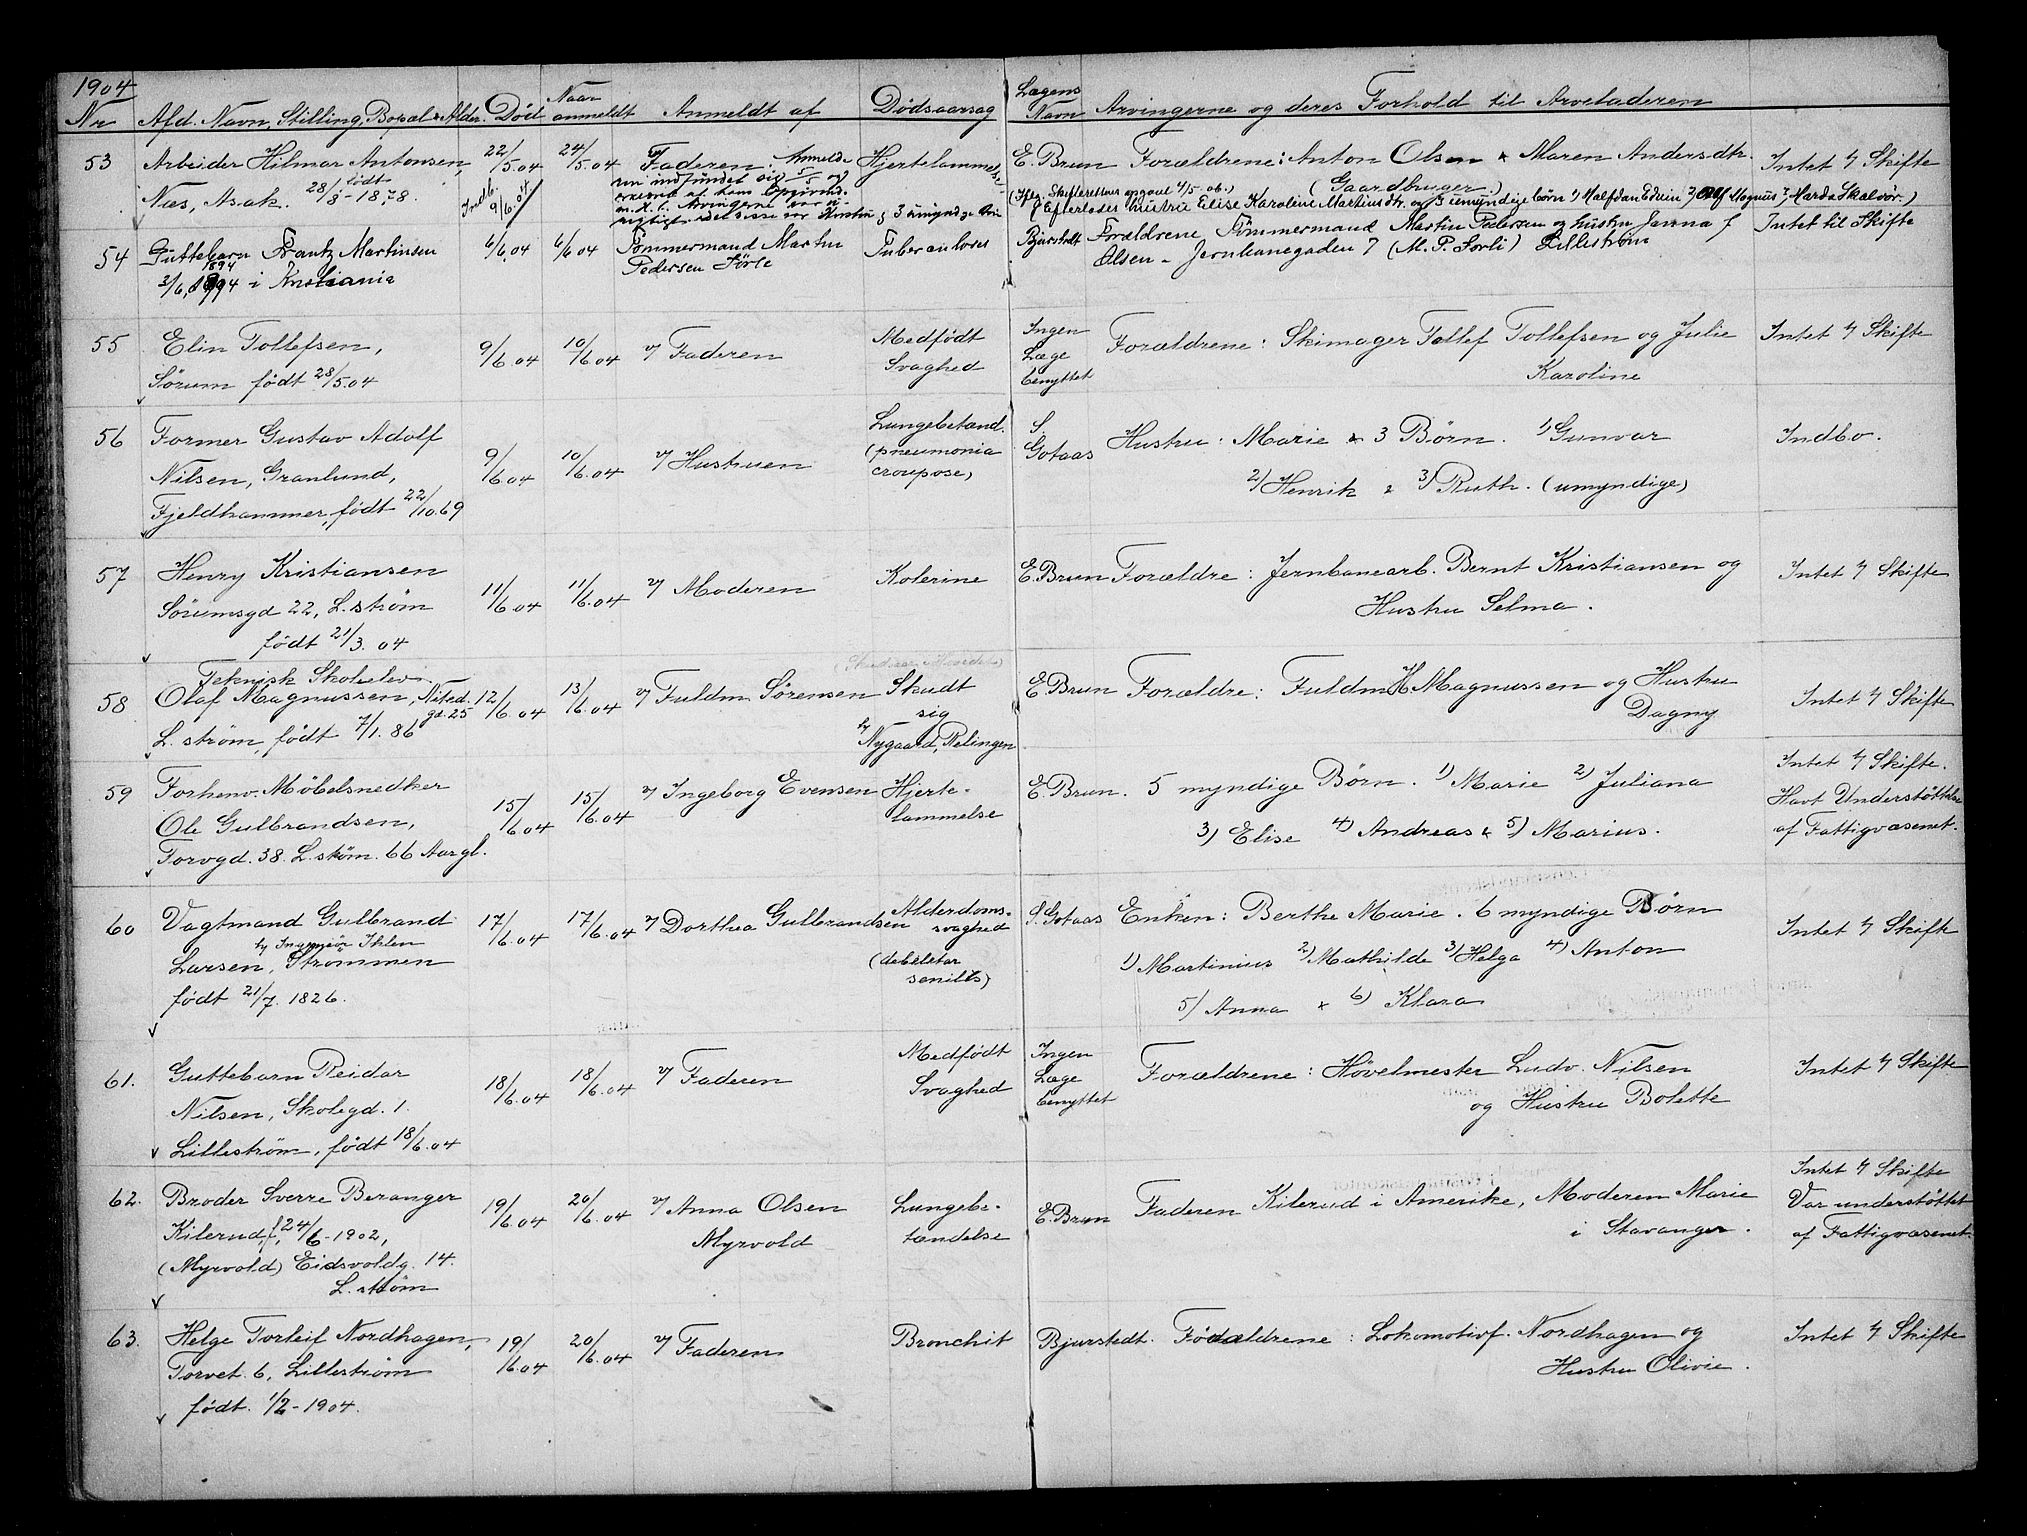 1904
Nr Afd. Navn, Stilling, Bopæl & Alder. Död Naar anmeldt Anmeldt af Dödsaarsag Lægens Navn Arvingerne og deres Forhold til Arveladeren
53 Arbeider Hilmar Antonsen, 22/5.04 24/5.04 v/ Faderen: Hjertelammelse E. Brun Forældrene: Anton Olsen & Maren Andersdtr. Intet t/ Skifte
Næs, Asak. født 28/8-1878 Indb. 9/6.04 (Gaardbruger)
Efterlader hustru Elise Karoline Martinsdtr. og 3 umyndige børn 1) Halfdan Edvin 2) Olf Magnus 3)
54 Guttebarn Frantz Martinsen 6/6.04 6/6.04 Tömmermand Martin Tuberculoses Bjurstedt Forældrene Tömmermand Martin Pedersen og hustru Janna f Intet til Skifte
1894 Pedersen Olsen - Jernbanegaden 7 (M. P. Sorli) Lilleström
3/6, 1894 i Kristiania
55 Elin Tollefsen, 9/6.04 10/6.04 v/ Faderen Medfödt Svaghed Ingen Læge benyttet Forældrene: Skimager Tollef Tollefsen og Julie Intet t/ Skifte
Sörum födt 28/5.04 Karoline
56 Former Gustav Adolf 9/6.04 10/6.04 v/ Hustruen Lungebetænd. S. Gotaas Hustru: Marie & 3 Børn. 1) Gunvar Indbo.
Nilsen, Granlund, (pneumonia croupose) 2) Henrik & 3) Ruth. (umyndige)
Fjeldhammer, födt 22/10.69
57 Henry Kristiansen 11/6.04 11/6.04 v/ Moderen Kolerine E. Brun Forældre: Jernbanearb. Bernt Kristiansen og Intet t/ Skifte
Sörumsgd 22, L.ström Hustru Selma.
födt 21/3.04
Teknisk Skoleelev
58 Olaf Magnussen, Nitted. gd. 25 12/6.04 13/6.04 v/ Fuldm Sörensen Skudt sig E. Brun Forældre: Fuldm H Magnussen og Hustru Intet t/ Skifte
L. ström, födt 7/1.86 Nygaard, Relingen Dagny
59 Forhenv. Möbelsnedker 15/6.04 15/6.04 v/ Ingeborg Evensen Hjerte- E. Brun. 5 myndige Børn. 1) Marie 2) Juliana Intet t/ Skifte.
Ole Gulbrandsen, lammelse 3) Elise 4) Andreas & 5) Marius. Havt Understöttelse
Torvgd. 38. L.ström. 66 Aar gl. af Fattigvæsenet.
60 Vagtmand Gulbrand 17/6.04 17/6.04 v/ Dorthea Gulbrandsen Alderdoms- S. Gotaas Enken: Berthe Marie. 6 myndige Børn Intet t/ Skifte
h/ Ingeniør Ihlen svaghed
Larsen, Strömmen (debilitas senilis) 1) Martinius 2) Mathilde 3) Helga 4) Anton
födt 21/7. 1826. 5) Anna & 6) Klara
61. Guttebarn Reidar 18/6.04 18/6.04 v/ Faderen Medfödt Ingen Forældrene: Hövelmester Ludv. Nilsen Intet t/ Skifte
Nilsen, Skolegd. 1. Svaghed Læge benyttet og Hustru Bolette
Lilleström, födt 18/6.04
62. Broder Sverre Beranger 19/6.04 20/6.04 v/ Anna Olsen Lungebe- E. Brun Faderen Kilerud i Amerike, Moderen Marie Intet t/ Skifte
Kilerud, f. 24/6-1902, Myrvold tændelse i Stavanger. Var understöttet
(Myrvold) Eidsvoldg. 14. af Fattigvæsenet.
L. ström
63. Helge Torleif Nordhagen, 19/6.04 20/6.04 v/ Faderen Bronchit Bjurstedt. Forældrene: Lokomotivf. Nordhagen og Intet t/ Skifte
Torvet 6, Lilleström Hustru Olivie.
födt. 1/2-1904.